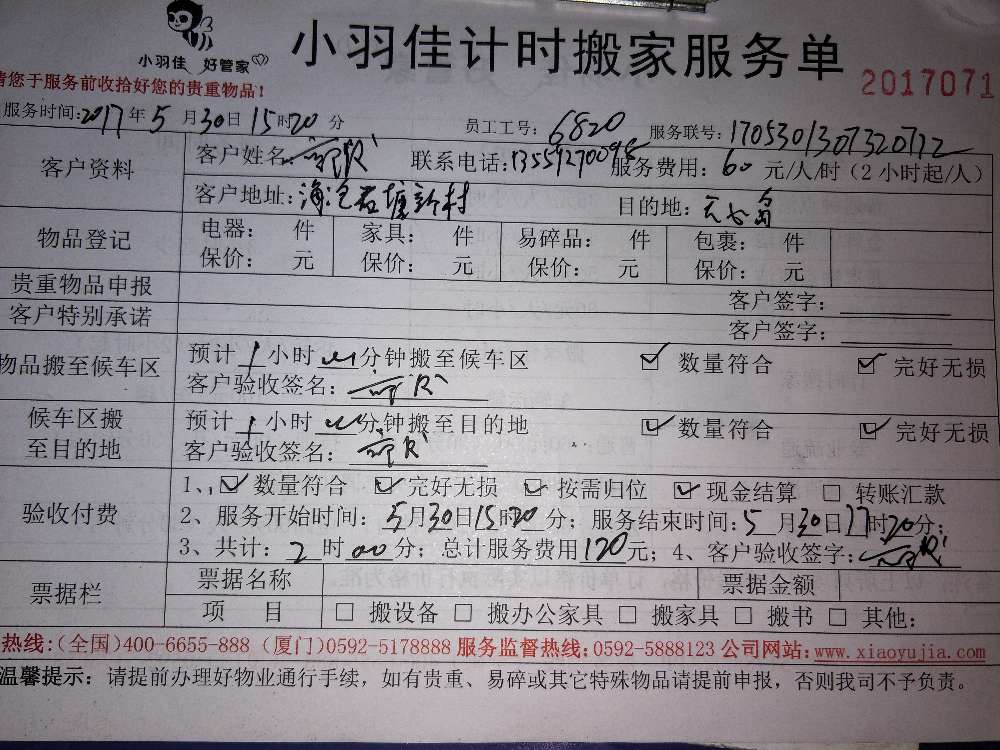 小羽佳 好管家
小羽佳计时搬家服务单
2017071
请您于服务前收拾好您的贵重物品!
服务时间:2017年5月30日15时20分 员工工号:6820 服务联号:
客户资料 客户姓名: 联系电话: 服务费用:60元/人/时(2小时起/人)
客户地址:海沧石塘新村 目的地:
物品登记 电器: 件 家具: 件 易碎品: 件 包裹: 件
保价: 元 保价: 元 保价: 元 保价: 元
贵重物品申报 客户签字:
客户特别承诺 客户签字:
物品搬至候车区 预计1小时 分钟搬至候车区 ☑ 数量符合 ☑ 完好无损
客户验收签名:
候车区搬至目的地 预计1小时 分钟搬至目的地 ☑ 数量符合 ☑ 完好无损
客户验收签名:
验收付费 1、☑ 数量符合 ☑ 完好无损 ☑ 按需归位 ☑ 现金结算 □ 转账汇款
2、服务开始时间:5月30日15时20分;服务结束时间:5月30日17时20分;
3、共计:2时00分;总计服务费用120元;4、客户验收签字:
票据栏 票据名称 票据金额
项 目 □ 搬设备 □ 搬办公家具 □ 搬家具 □ 搬书 □ 其他:
热线:(全国)400-6655-888 (厦门)0592-5178888 服务监督热线:0592-5888123 公司网站:www.xiaoyujia.com
温馨提示:请提前办理好物业通行手续,如有贵重、易碎或其它特殊物品请提前申报,否则我司不予负责。